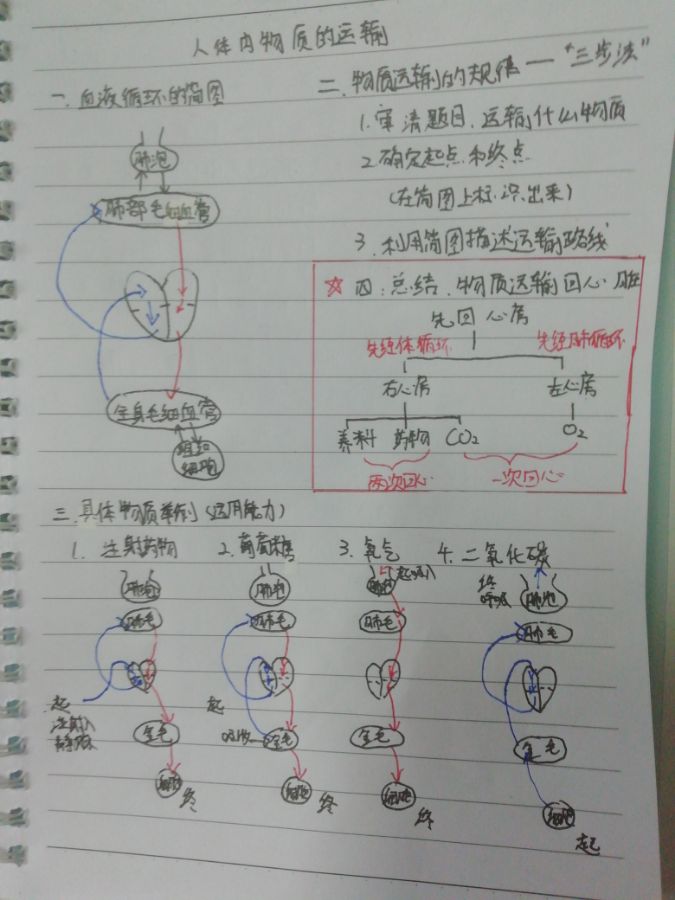 人体内物质的运输
一、血液循环的简图
肺泡
肺部毛细血管
全身毛细血管
组织
细胞
二、物质运输的规律——“三步法”
1.审清题目、运输什么物质
2.确定起点和终点
(在简图上标识出来)
3.利用简图描述运输路线
☆四.总结.物质运输回心脏
先回心房
先经体循环 先经肺循环
右心房 左心房
养料 药物 CO₂ O₂
两次回心 一次回心
三.具体物质举例(运用能力)
1.注射药物
肺泡
肺毛
起
注射入
全毛
细胞
终
2.葡萄糖
肺泡
肺毛
起
吸收
全毛
细胞
终
3.氧气
肺泡
起吸入
肺毛
全毛
细胞
终
4.二氧化碳
终
呼吸
肺泡
肺毛
全毛
细胞
起